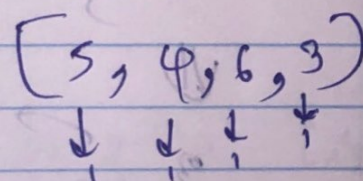 [5, 4, 6, 3)
↓ ↓ ↓ ↓